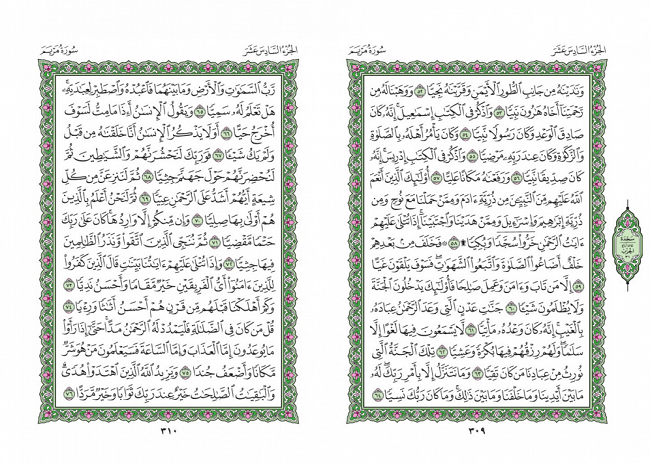 الجزء السادس عشر
سورة مريم
وَنَٰدَيْنَٰهُ مِن جَانِبِ ٱلطُّورِ ٱلْأَيْمَنِ وَقَرَّبْنَٰهُ نَجِيًّا ٥٢ وَوَهَبْنَا لَهُۥ مِن
رَّحْمَتِنَآ أَخَاهُ هَٰرُونَ نَبِيًّا ٥٣ وَٱذْكُرْ فِى ٱلْكِتَٰبِ إِسْمَٰعِيلَ إِنَّهُۥ كَانَ
صَادِقَ ٱلْوَعْدِ وَكَانَ رَسُولًا نَّبِيًّا ٥٤ وَكَانَ يَأْمُرُ أَهْلَهُۥ بِٱلصَّلَوٰةِ
وَٱلزَّكَوٰةِ وَكَانَ عِندَ رَبِّهِۦ مَرْضِيًّا ٥٥ وَٱذْكُرْ فِى ٱلْكِتَٰبِ إِدْرِيسَ إِنَّهُۥ
كَانَ صِدِّيقًا نَّبِيًّا ٥٦ وَرَفَعْنَٰهُ مَكَانًا عَلِيًّا ٥٧ أُو۟لَٰٓئِكَ ٱلَّذِينَ أَنْعَمَ
ٱللَّهُ عَلَيْهِم مِّنَ ٱلنَّبِيِّۦنَ مِن ذُرِّيَّةِ ءَادَمَ وَمِمَّنْ حَمَلْنَا مَعَ نُوحٍ وَمِن
ذُرِّيَّةِ إِبْرَٰهِيمَ وَإِسْرَٰٓءِيلَ وَمِمَّنْ هَدَيْنَا وَٱجْتَبَيْنَآ إِذَا تُتْلَىٰ عَلَيْهِمْ
ءَايَٰتُ ٱلرَّحْمَٰنِ خَرُّوا۟ سُجَّدًا وَبُكِيًّا ۩ ٥٨ فَخَلَفَ مِنۢ بَعْدِهِمْ
خَلْفٌ أَضَاعُوا۟ ٱلصَّلَوٰةَ وَٱتَّبَعُوا۟ ٱلشَّهَوَٰتِ فَسَوْفَ يَلْقَوْنَ غَيًّا
٥٩ إِلَّا مَن تَابَ وَءَامَنَ وَعَمِلَ صَٰلِحًا فَأُو۟لَٰٓئِكَ يَدْخُلُونَ ٱلْجَنَّةَ
وَلَا يُظْلَمُونَ شَيْـًٔا ٦٠ جَنَّٰتِ عَدْنٍ ٱلَّتِى وَعَدَ ٱلرَّحْمَٰنُ عِبَادَهُۥ
بِٱلْغَيْبِ إِنَّهُۥ كَانَ وَعْدُهُۥ مَأْتِيًّا ٦١ لَّا يَسْمَعُونَ فِيهَا لَغْوًا إِلَّا
سَلَٰمًا وَلَهُمْ رِزْقُهُمْ فِيهَا بُكْرَةً وَعَشِيًّا ٦٢ تِلْكَ ٱلْجَنَّةُ ٱلَّتِى
نُورِثُ مِنْ عِبَادِنَا مَن كَانَ تَقِيًّا ٦٣ وَمَا نَتَنَزَّلُ إِلَّا بِأَمْرِ رَبِّكَ لَهُۥ
مَا بَيْنَ أَيْدِينَا وَمَا خَلْفَنَا وَمَا بَيْنَ ذَٰلِكَ وَمَا كَانَ رَبُّكَ نَسِيًّا ٦٤
٣٠٩
سجدة
الجزء السادس عشر
سورة مريم
رَّبُّ ٱلسَّمَٰوَٰتِ وَٱلْأَرْضِ وَمَا بَيْنَهُمَا فَٱعْبُدْهُ وَٱصْطَبِرْ لِعِبَٰدَتِهِۦ
هَلْ تَعْلَمُ لَهُۥ سَمِيًّا ٦٥ وَيَقُولُ ٱلْإِنسَٰنُ أَءِذَا مَا مِتُّ لَسَوْفَ
أُخْرَجُ حَيًّا ٦٦ أَوَلَا يَذْكُرُ ٱلْإِنسَٰنُ أَنَّا خَلَقْنَٰهُ مِن قَبْلُ
وَلَمْ يَكُ شَيْـًٔا ٦٧ فَوَرَبِّكَ لَنَحْشُرَنَّهُمْ وَٱلشَّيَٰطِينَ ثُمَّ
لَنُحْضِرَنَّهُمْ حَوْلَ جَهَنَّمَ جِثِيًّا ٦٨ ثُمَّ لَنَنزِعَنَّ مِن كُلِّ
شِيعَةٍ أَيُّهُمْ أَشَدُّ عَلَى ٱلرَّحْمَٰنِ عِتِيًّا ٦٩ ثُمَّ لَنَحْنُ أَعْلَمُ بِٱلَّذِينَ
هُمْ أَوْلَىٰ بِهَا صِلِيًّا ٧٠ وَإِن مِّنكُمْ إِلَّا وَارِدُهَا كَانَ عَلَىٰ رَبِّكَ
حَتْمًا مَّقْضِيًّا ٧١ ثُمَّ نُنَجِّى ٱلَّذِينَ ٱتَّقَوا۟ وَّنَذَرُ ٱلظَّٰلِمِينَ
فِيهَا جِثِيًّا ٧٢ وَإِذَا تُتْلَىٰ عَلَيْهِمْ ءَايَٰتُنَا بَيِّنَٰتٍ قَالَ ٱلَّذِينَ كَفَرُوا۟
لِلَّذِينَ ءَامَنُوٓا۟ أَىُّ ٱلْفَرِيقَيْنِ خَيْرٌ مَّقَامًا وَأَحْسَنُ نَدِيًّا ٧٣
وَكَمْ أَهْلَكْنَا قَبْلَهُم مِّن قَرْنٍ هُمْ أَحْسَنُ أَثَٰثًا وَرِءْيًا ٧٤
قُلْ مَن كَانَ فِى ٱلضَّلَٰلَةِ فَلْيَمْدُدْ لَهُ ٱلرَّحْمَٰنُ مَدًّا حَتَّىٰٓ إِذَا رَأَوْا۟
مَا يُوعَدُونَ إِمَّا ٱلْعَذَابَ وَإِمَّا ٱلسَّاعَةَ فَسَيَعْلَمُونَ مَنْ هُوَ شَرٌّ
مَّكَانًا وَأَضْعَفُ جُندًا ٧٥ وَيَزِيدُ ٱللَّهُ ٱلَّذِينَ ٱهْتَدَوْا۟ هُدًى
وَٱلْبَٰقِيَٰتُ ٱلصَّٰلِحَٰتُ خَيْرٌ عِندَ رَبِّكَ ثَوَابًا وَخَيْرٌ مَّرَدًّا ٧٦
٣١٠